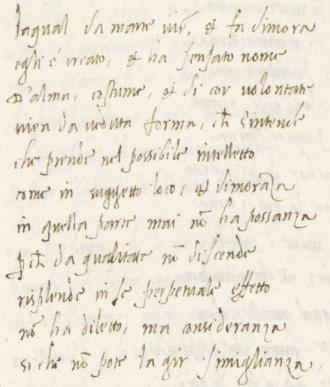 laqual da marte vie͂, et fa dimora
egli é creato, et ha sensato nome
D'alma, costume, et di cor volontate
vien da veduta forma, ch̃ s'intende
che prende nel possibile intelletto
come in suggetto loco, et dimora͂za
in quella parte mai nõ ha possanza
ꝑch̃ da qualitate nõ discende
risplende in se perpetuale effetto
nõ ha diletto, ma co͂sideranza
si che nõ pote la gir simiglianza,